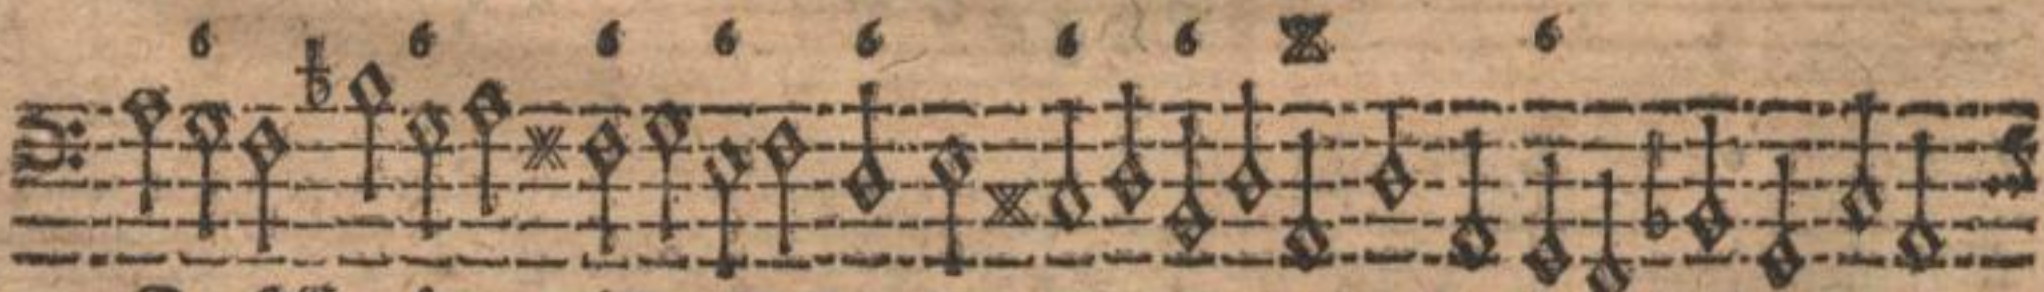 6 6 6 6 6 6 6 6